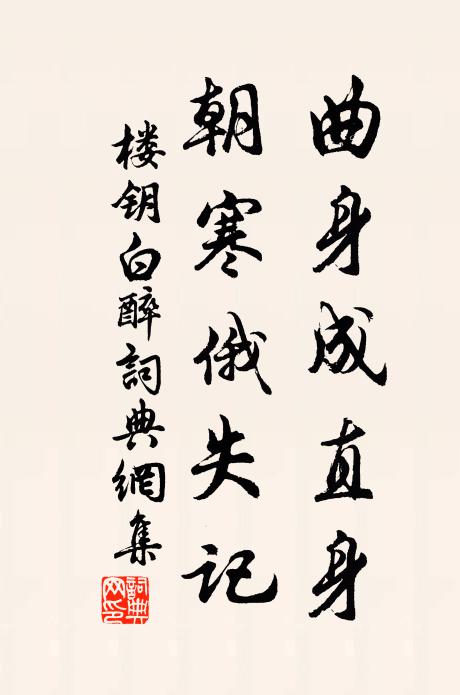 曲身成直身
朝寒俄失记
楼钥白醉詞典網集
詞典
网印